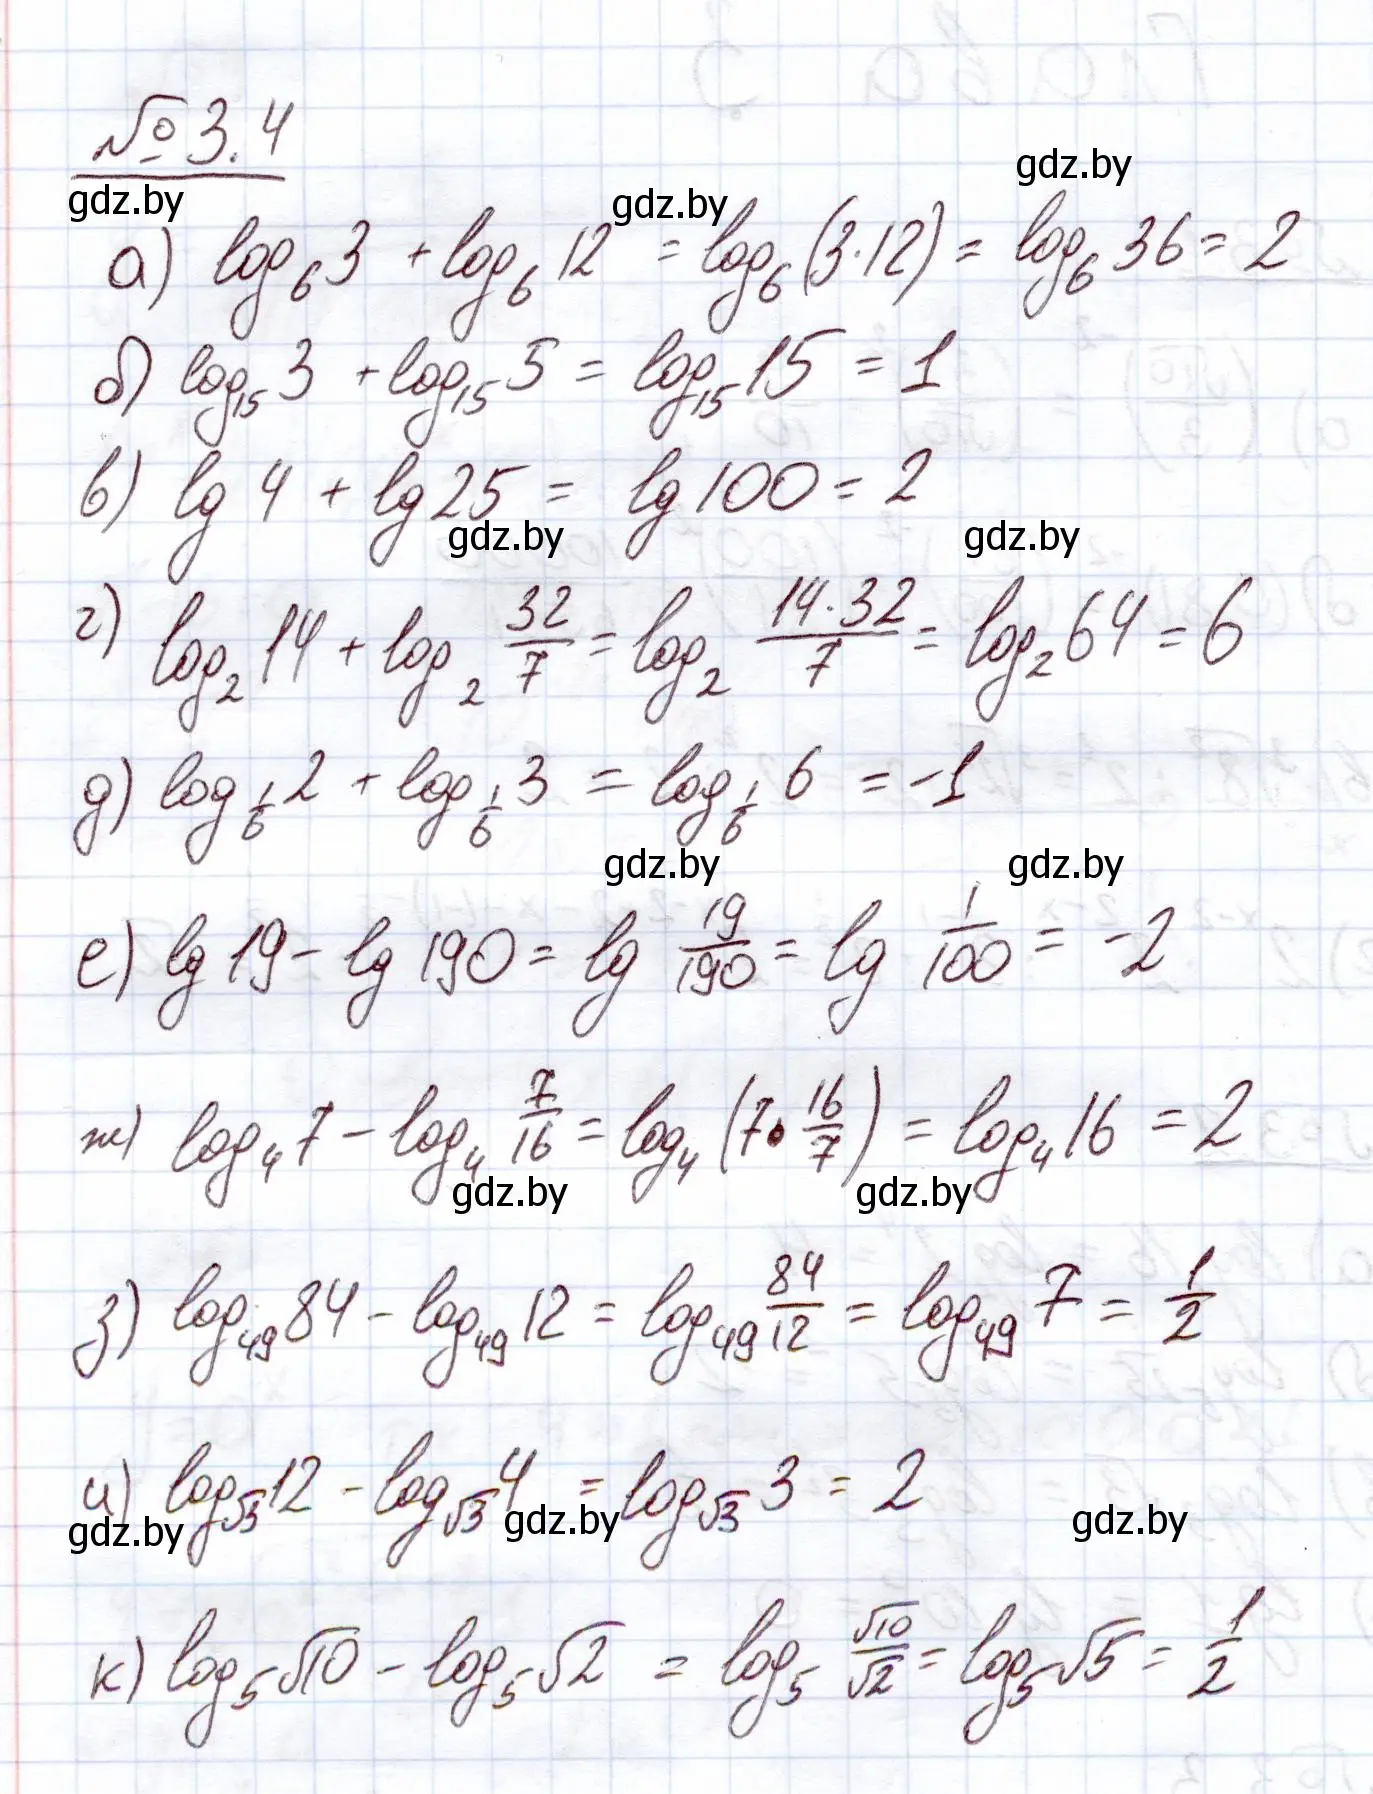 № 3.4
gdz.by gdz.by gdz.by
а) log₆3 + log₆12 = log₆(3·12) = log₆36 = 2
б) log₁₅3 + log₁₅5 = log₁₅15 = 1
в) lg 4 + lg 25 = lg 100 = 2
gdz.by gdz.by
г) log₂14 + log₂ 32/7 = log₂ 14·32/7 = log₂64 = 6
д) log_1/6 2 + log_1/6 3 = log_1/6 6 = -1
gdz.by gdz.by
е) lg 19 - lg 190 = lg 19/190 = lg 1/100 = -2
ж) log₄7 - log₄ 7/16 = log₄(7·16/7) = log₄16 = 2
gdz.by gdz.by
з) log₄₉84 - log₄₉12 = log₄₉ 84/12 = log₄₉7 = 1/2
и) log_√3 12 - log_√3 4 = log_√3 3 = 2
gdz.by gdz.by gdz.by
к) log₅√10 - log₅√2 = log₅ √10/√2 = log₅√5 = 1/2